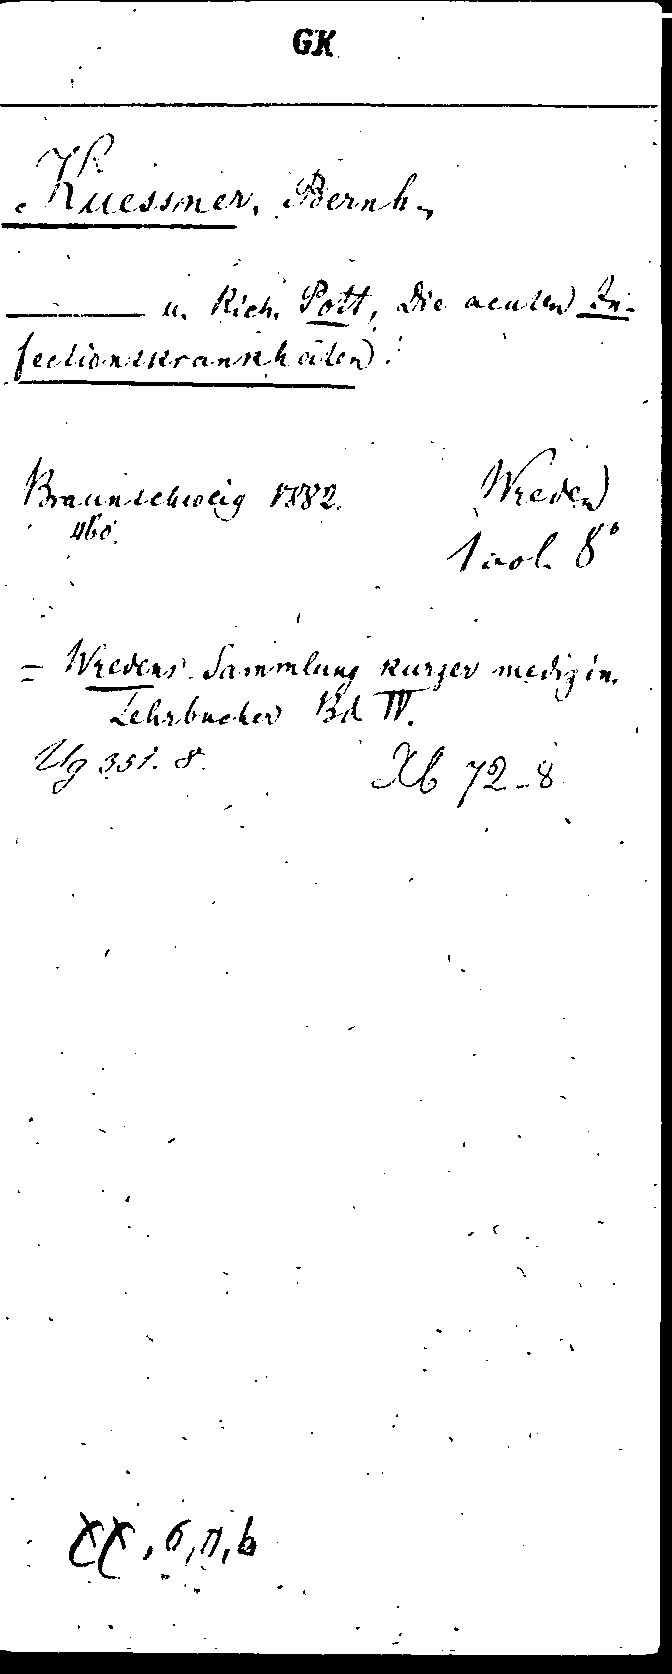 GK
Kuessner, Bernh.
u. Rich. Pott, Die acuten In-
fectionskrankheiten.
Braunschweig 1882. Wreden
460. 1 vol. 8°
= Wredens Sammlung kurzer medizin.
Lehrbücher Bd IV.
Ug 351. 8. Xb 72-8